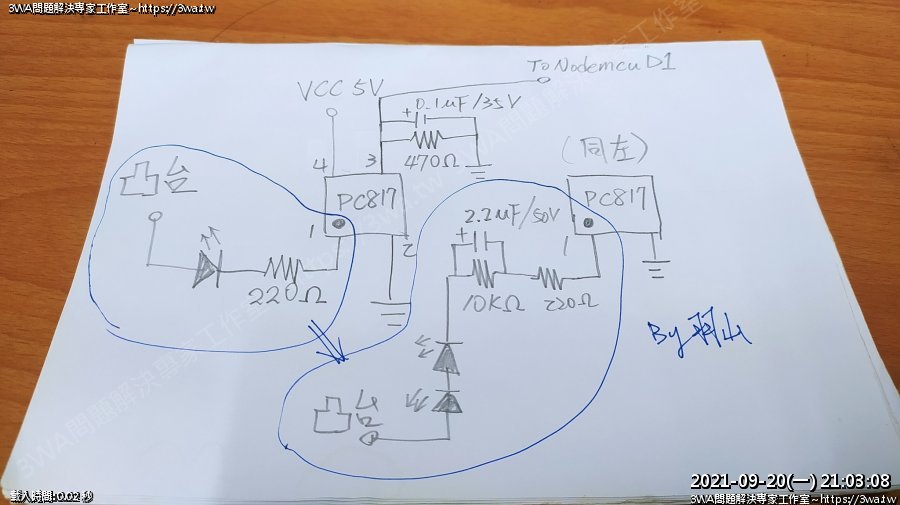 3WA問題解決專家工作室~https://3wa.tw
To Nodemcu D1
VCC 5V
+ 0.1uF/35V
470Ω
4
3
PC817
1
2
凸台
220Ω
(同左)
PC817
1
2.2uF/50V
+
10KΩ
220Ω
凸台
By 羽山
3WA問題解決專家工作室
載入時間:0.02 秒
2021-09-20(一) 21:03:08
3WA問題解決專家工作室~https://3wa.tw